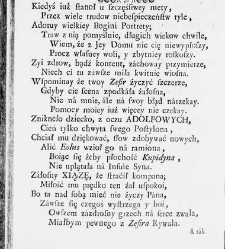 Kiedyś iuż stanoł u szczęśliwey mety,
Przez wiele trudow niebeśpieczeństw tyle,
Adoruy wielkiey Bogini Portrety;
Traw z nią pomyślnie, długich wiekow chwile,
Wiem, że z Jey Domu nic cię niewypłoszy,
Procz własney woli, y zbytniey roskoszy.
Zyi zdrow, bądź kontent, zachoway przymierze,
Niech ci tu zawsze miła kwitnie wiosna.
Wspominay że twoy Zefir życzyć szczerze,
Gdyby cię scena spodkała żałosna,
Nie na mnie, ale na swoy błąd narzekay.
Pomocy moiey iuż więcey nie czekay.
Zniknęło dziecko, z oczu ADOLFOWYCH,
Cień tylko chwyta swego Postylona,
Chciał mu dziękować, słow zdobywać nowych,
Alić Eolus wzioł go na ramiona,
Boiąc się żeby płochość Kupidyna,
Nie uplątała na Insule Syna.
Załosny XIĄZĘ, że stracił kompana;
Miłość mu prędko ten żal uspokoi,
Bo ta nad sobą mieć nie życzy Pana,
Zawsze się czegoś wystrzega y boi,
Owszem zazdrosny grzech na serce zwala,
Miałbym pewnego z Zefira Rywala.
A tak